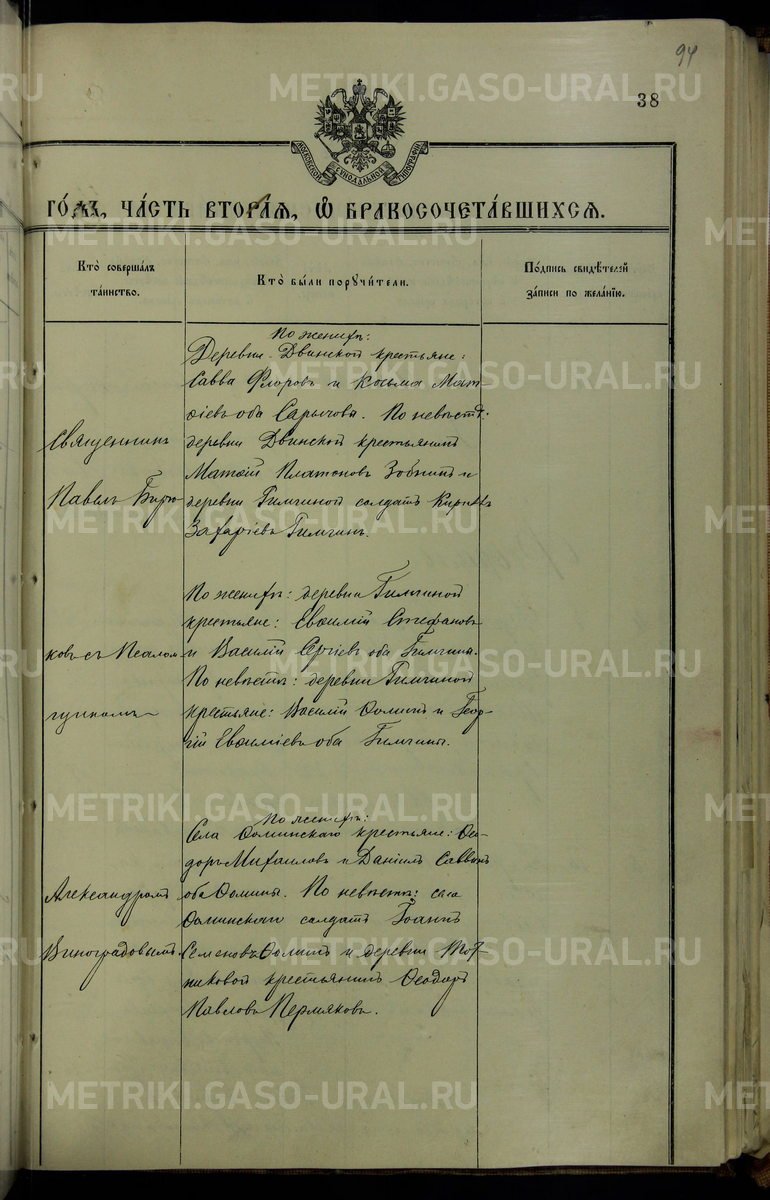 94
38
МОСКОВСКОЙ СѴНОДАЛЬНОЙ ТИПОГРАФІИ
ГО́ДЪ, ЧА́СТЬ ВТОРА́Я, Ѿ БРАКОСОЧЕТА́ВШИХСЯ.
Кто̀ соверша́лъ
та́инство.
Кто̀ бы́ли поручи́тели.
По́дпись свидѣ́телей
за́писи по жела́нїю.
Священникъ
Павелъ Бирю-
ковъ съ Псалом-
щикомъ
Александромъ
Виноградовымъ.
По женихѣ:
Деревни Двинской крестьяне:
Савва Флоровъ и Косьма Мат-
ѳіевъ оба Сарычовы. По невѣстѣ:
деревни Двинской крестьянинъ
Матѳій Платоновъ Зобнинъ и
деревни Гилчиной солдатъ Кириллъ
Захаріевъ Гилчинъ.
По женихѣ: деревни Гилчиной
крестьяне: Евѳимій Стефановъ
и Василій Сергіевъ оба Гилчины.
По невѣстѣ: деревни Гилчиной
крестьяне: Василій Ѳоминъ и Геор-
гій Евѳиміевъ оба Гилчины.
По женихѣ:
Села Ѳоминскаго крестьяне: Ѳео-
доръ Михаиловъ и Даніилъ Саввинъ
оба Ѳомины. По невѣстѣ: села
Ѳоминскаго солдатъ Іоаннъ
Семеновъ Ѳоминъ и деревни
крестьянинъ Ѳеодоръ
Павловъ Пермяковъ.
METRIKI.GASO-URAL.RU